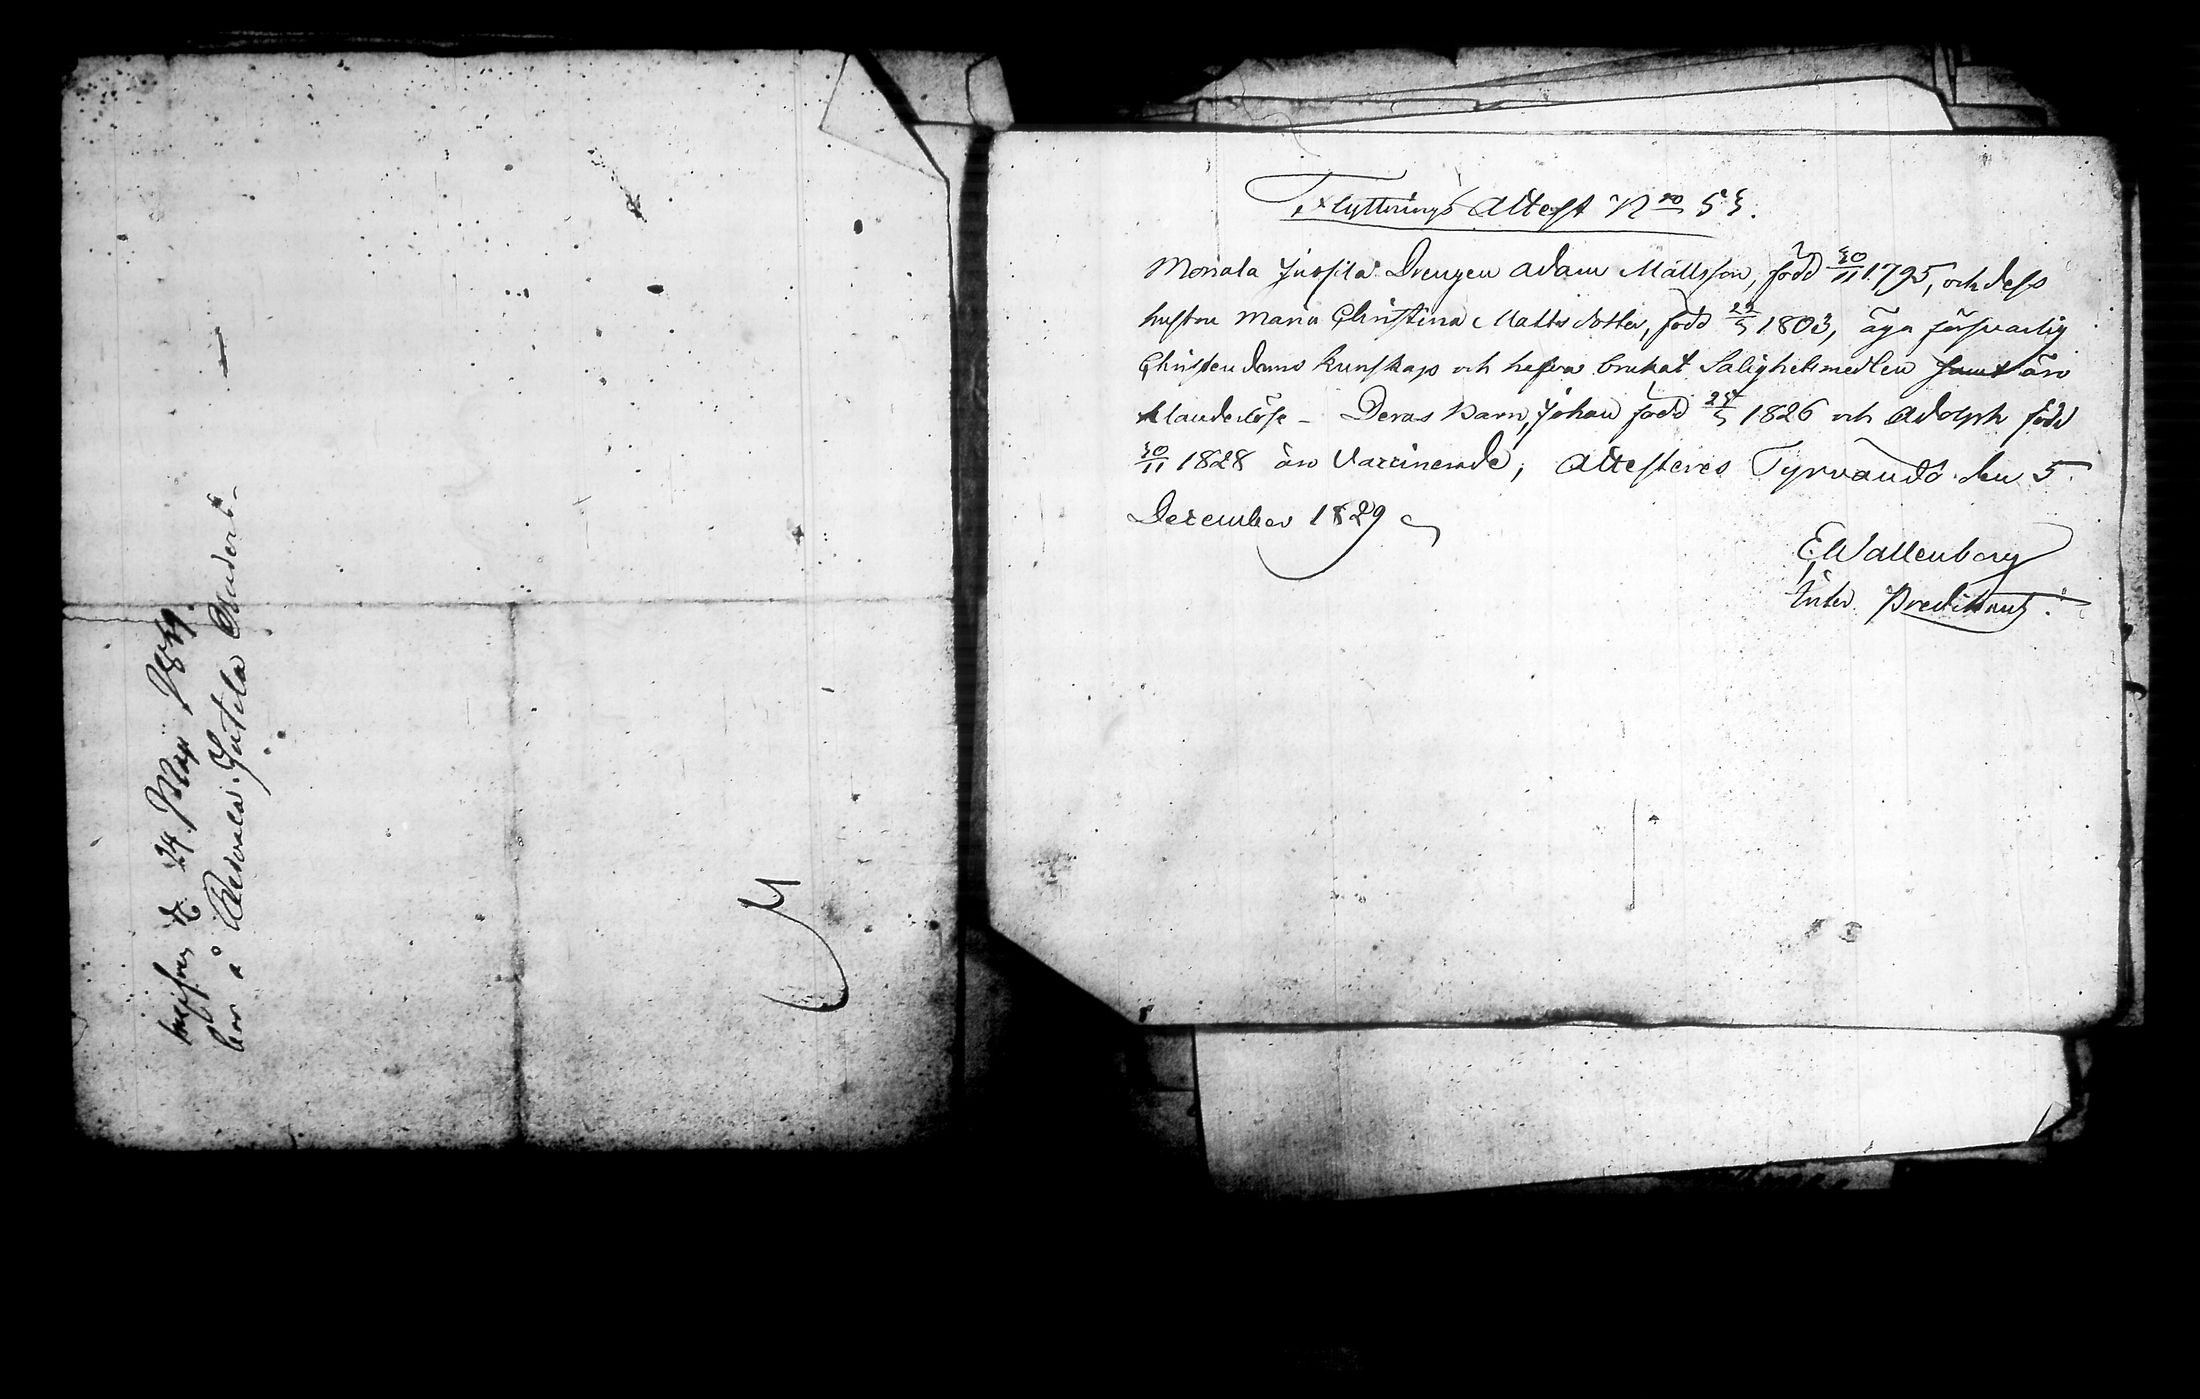 Flyttnings Attest N<sup>ro</sup> 53.
Monala Jussila Drengen Adam Mattsson, född 30/11 1795, och dess
hustru Maria Christina Matts dotter, född 22/5 1803, äga försvarlig
Christendoms kunskap och hafva brukat Salighetsmedlen samt äro
klanderlöse – Deras Barn, Johan född 24/5 1826 och Adolph född
30/11 1828 äro Vaccinerade; Attesteres Tyrvändö den 5
December 1829
E Wallenberg
Inter. Predikant.
d. 24 Maji 1829
bor å